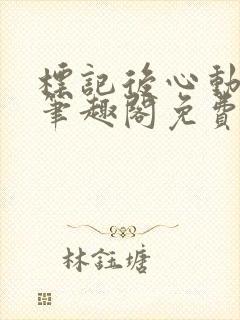 標記後心動
筆趣閣免費
林鈺塘